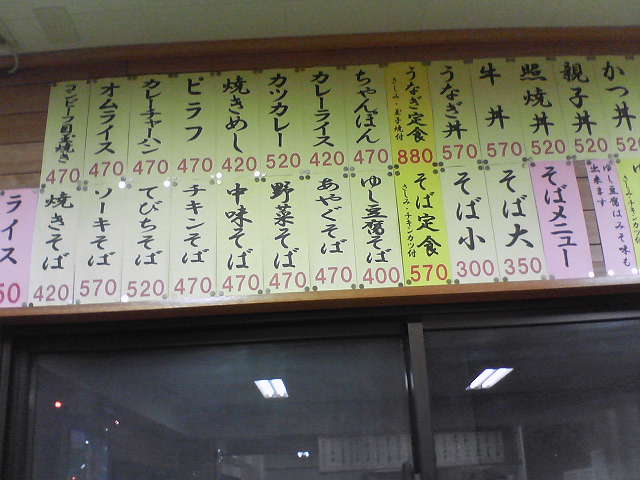 かつ丼
520
親子丼
520
照焼丼
520
牛丼
570
うなぎ丼
570
うなぎ定食
さしみ・玉子焼付
880
ちゃんぽん
470
カレーライス
420
カツカレー
520
焼きめし
420
ピラフ
470
カレーチャーハン
470
オムライス
470
コンビーフ目玉焼き
470
ゆし豆腐はみそ味も
出来ます
そばメニュー
そば大
350
そば小
300
そば定食
さしみ・チキンカツ付
570
ゆし豆腐そば
400
あやぐそば
470
野菜そば
470
中味そば
470
チキンそば
470
てびちそば
520
ソーキそば
570
焼きそば
420
ライス
50